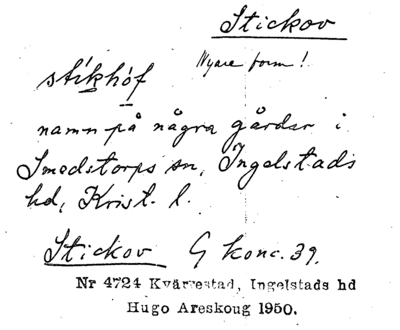 Stickov
Nyare form!
stikhóf
namn på några gårdar i
Smedstorps sn, Ingelstads
hd, Krist. l.
Stickov G konc. 39.
Nr 4724 Kvärrestad, Ingelstads hd
Hugo Areskoug 1950.